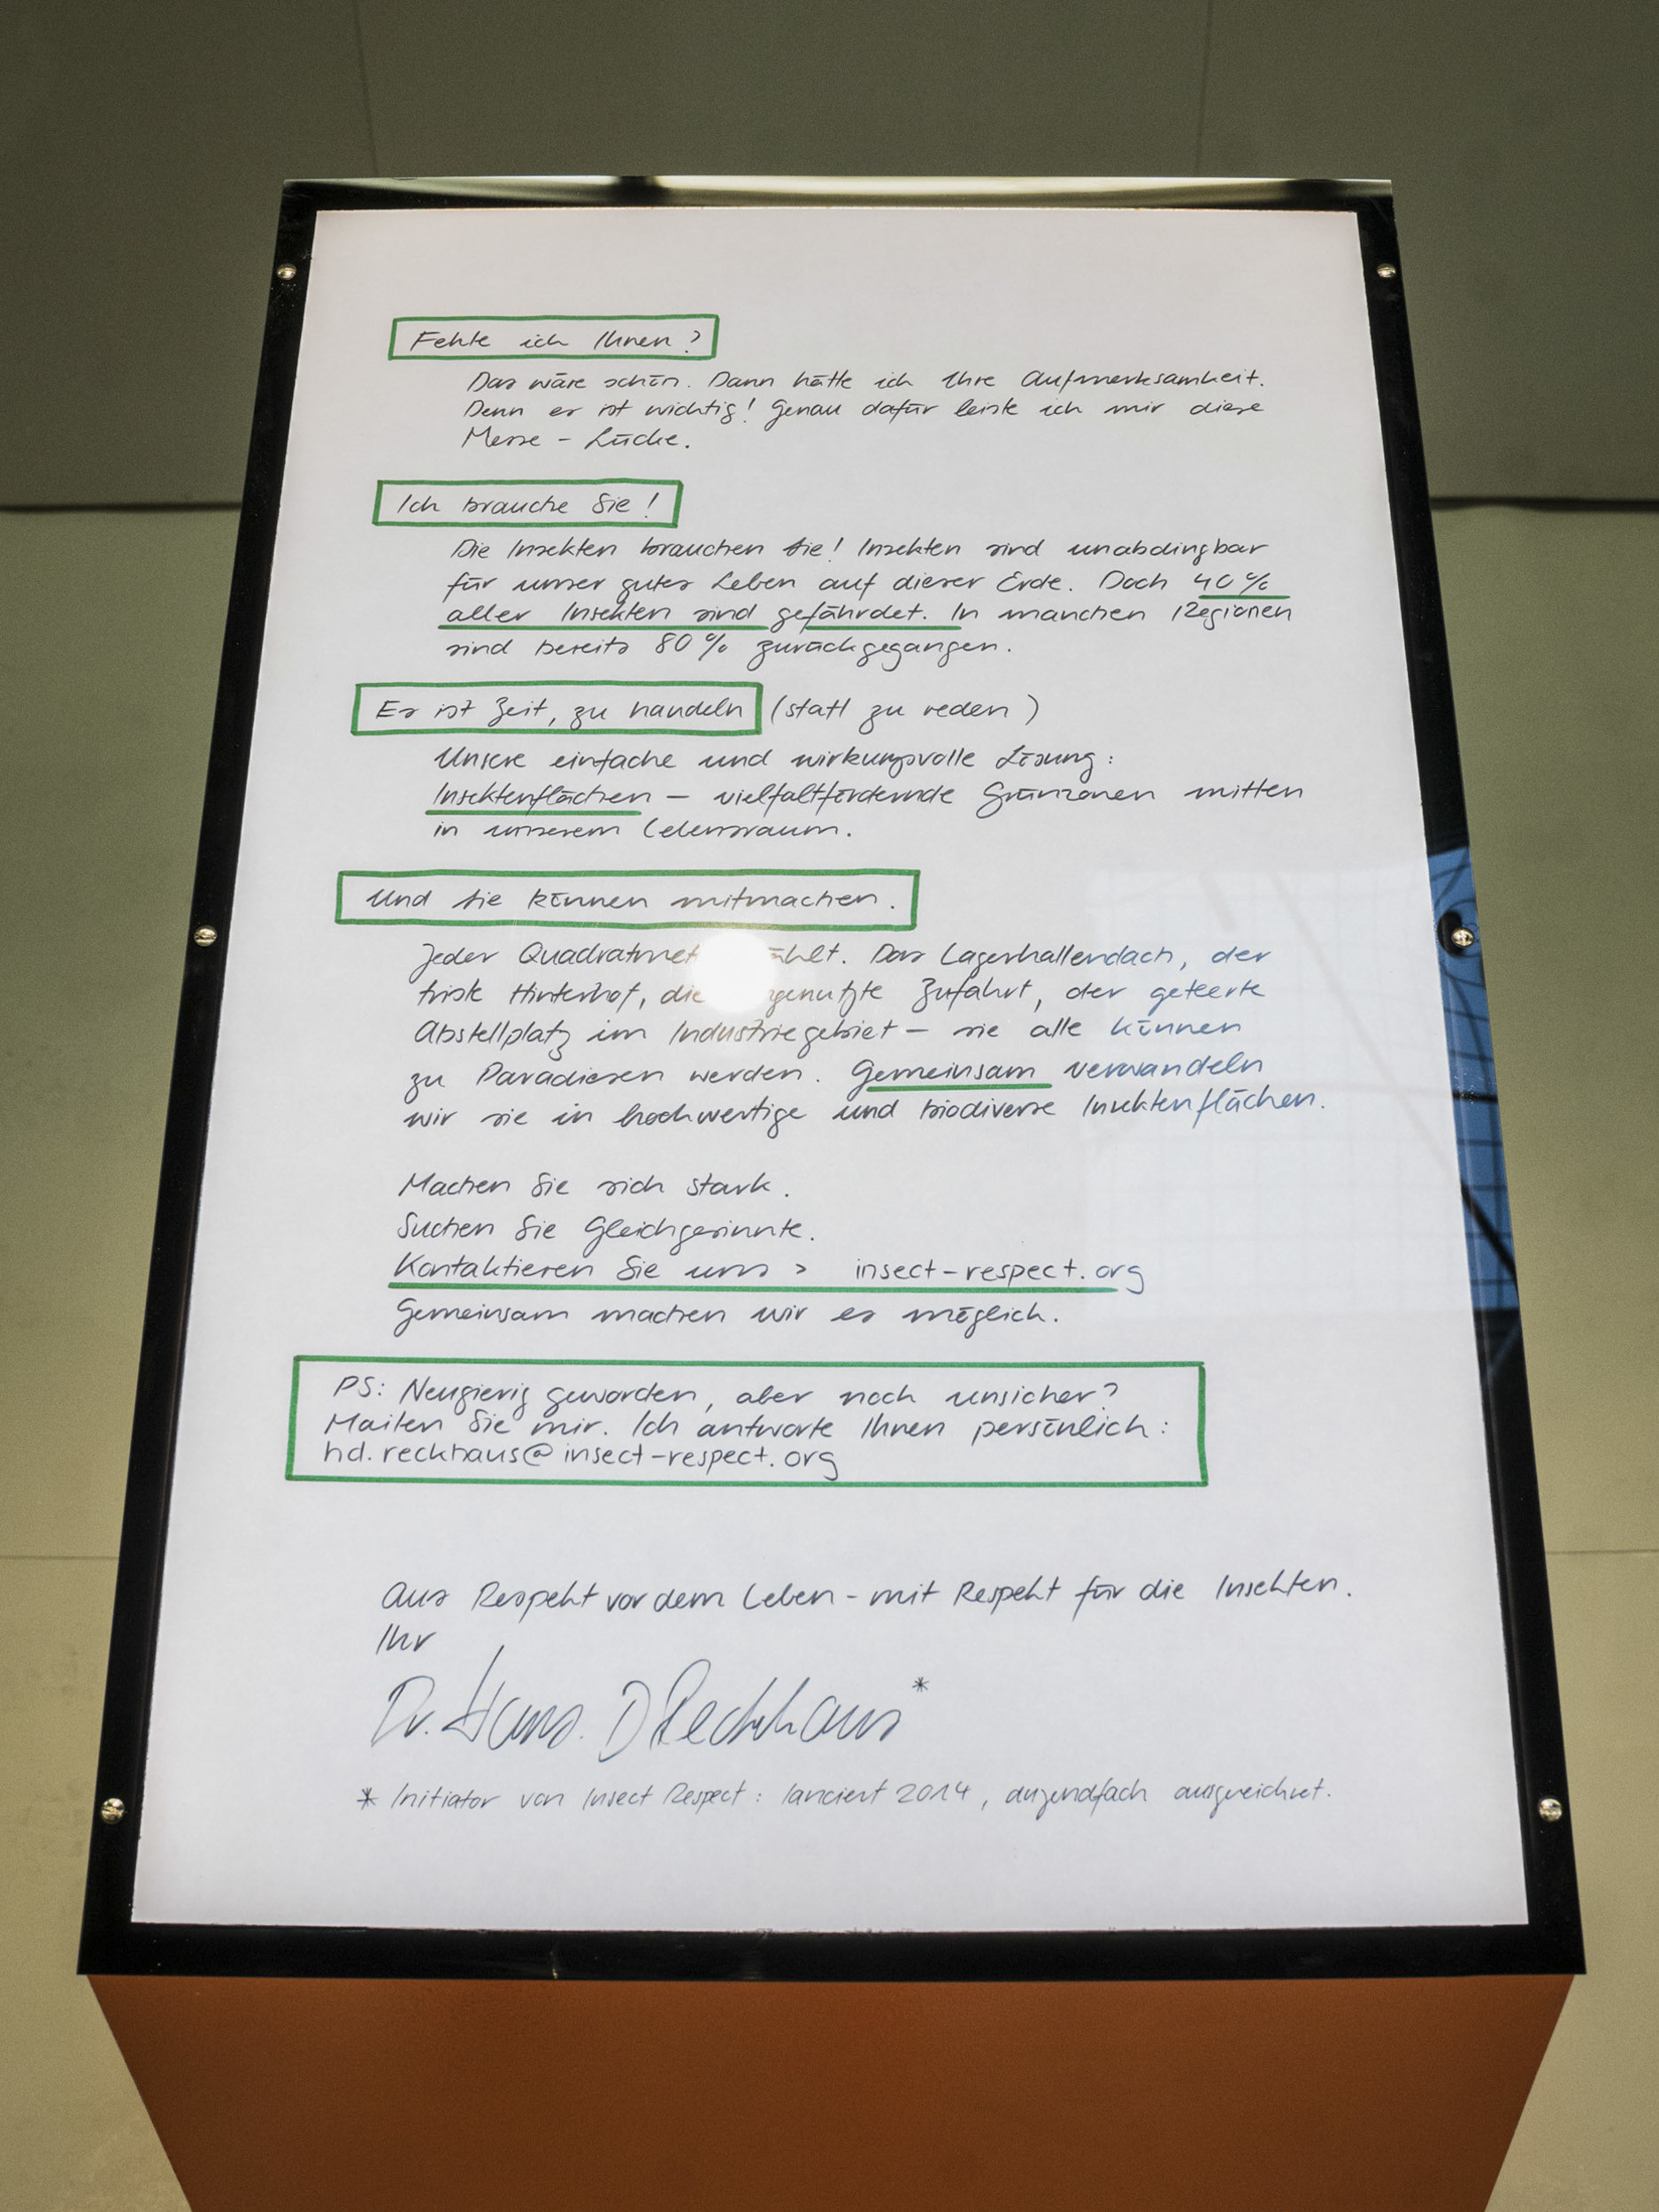 Fehle ich Ihnen?
Das wäre schön. Dann hätte ich Ihre Aufmerksamkeit.
Denn es ist wichtig! Genau dafür leiste ich mir diese
Messe-Lücke.
Ich brauche Sie!
Die Insekten brauchen Sie! Insekten sind unabdingbar
für unser gutes Leben auf dieser Erde. Doch 40%
aller Insekten sind gefährdet. In manchen Regionen
sind bereits 80% zurückgegangen.
Es ist Zeit, zu handeln (statt zu reden)
Unsere einfache und wirkungsvolle Lösung:
Insektenflächen – vielfaltfördernde Grünzonen mitten
in unserem Lebensraum.
Und Sie können mitmachen.
Jeder Das Lagerhallendach, der
triste Hinterhof, die Zufahrt, der geteerte
Abstellplatz im Industriegebiet – sie alle können
zu Paradiesen werden. Gemeinsam verwandeln
wir sie in hochwertige und biodiverse Insektenflächen.
Machen Sie sich stark.
Suchen Sie Gleichgesinnte.
Kontaktieren Sie uns > insect-respect.org
Gemeinsam machen wir es möglich.
PS: Neugierig geworden, aber noch unsicher?
Mailen Sie mir. Ich antworte Ihnen persönlich:
hd.reckhaus@insect-respect.org
Aus Respekt vor dem Leben – mit Respekt für die Insekten.
Ihr
Dr. Hans. D Reckhaus*
* Initiator von Insect Respect: lanciert 2014, dutzendfach ausgezeichnet.